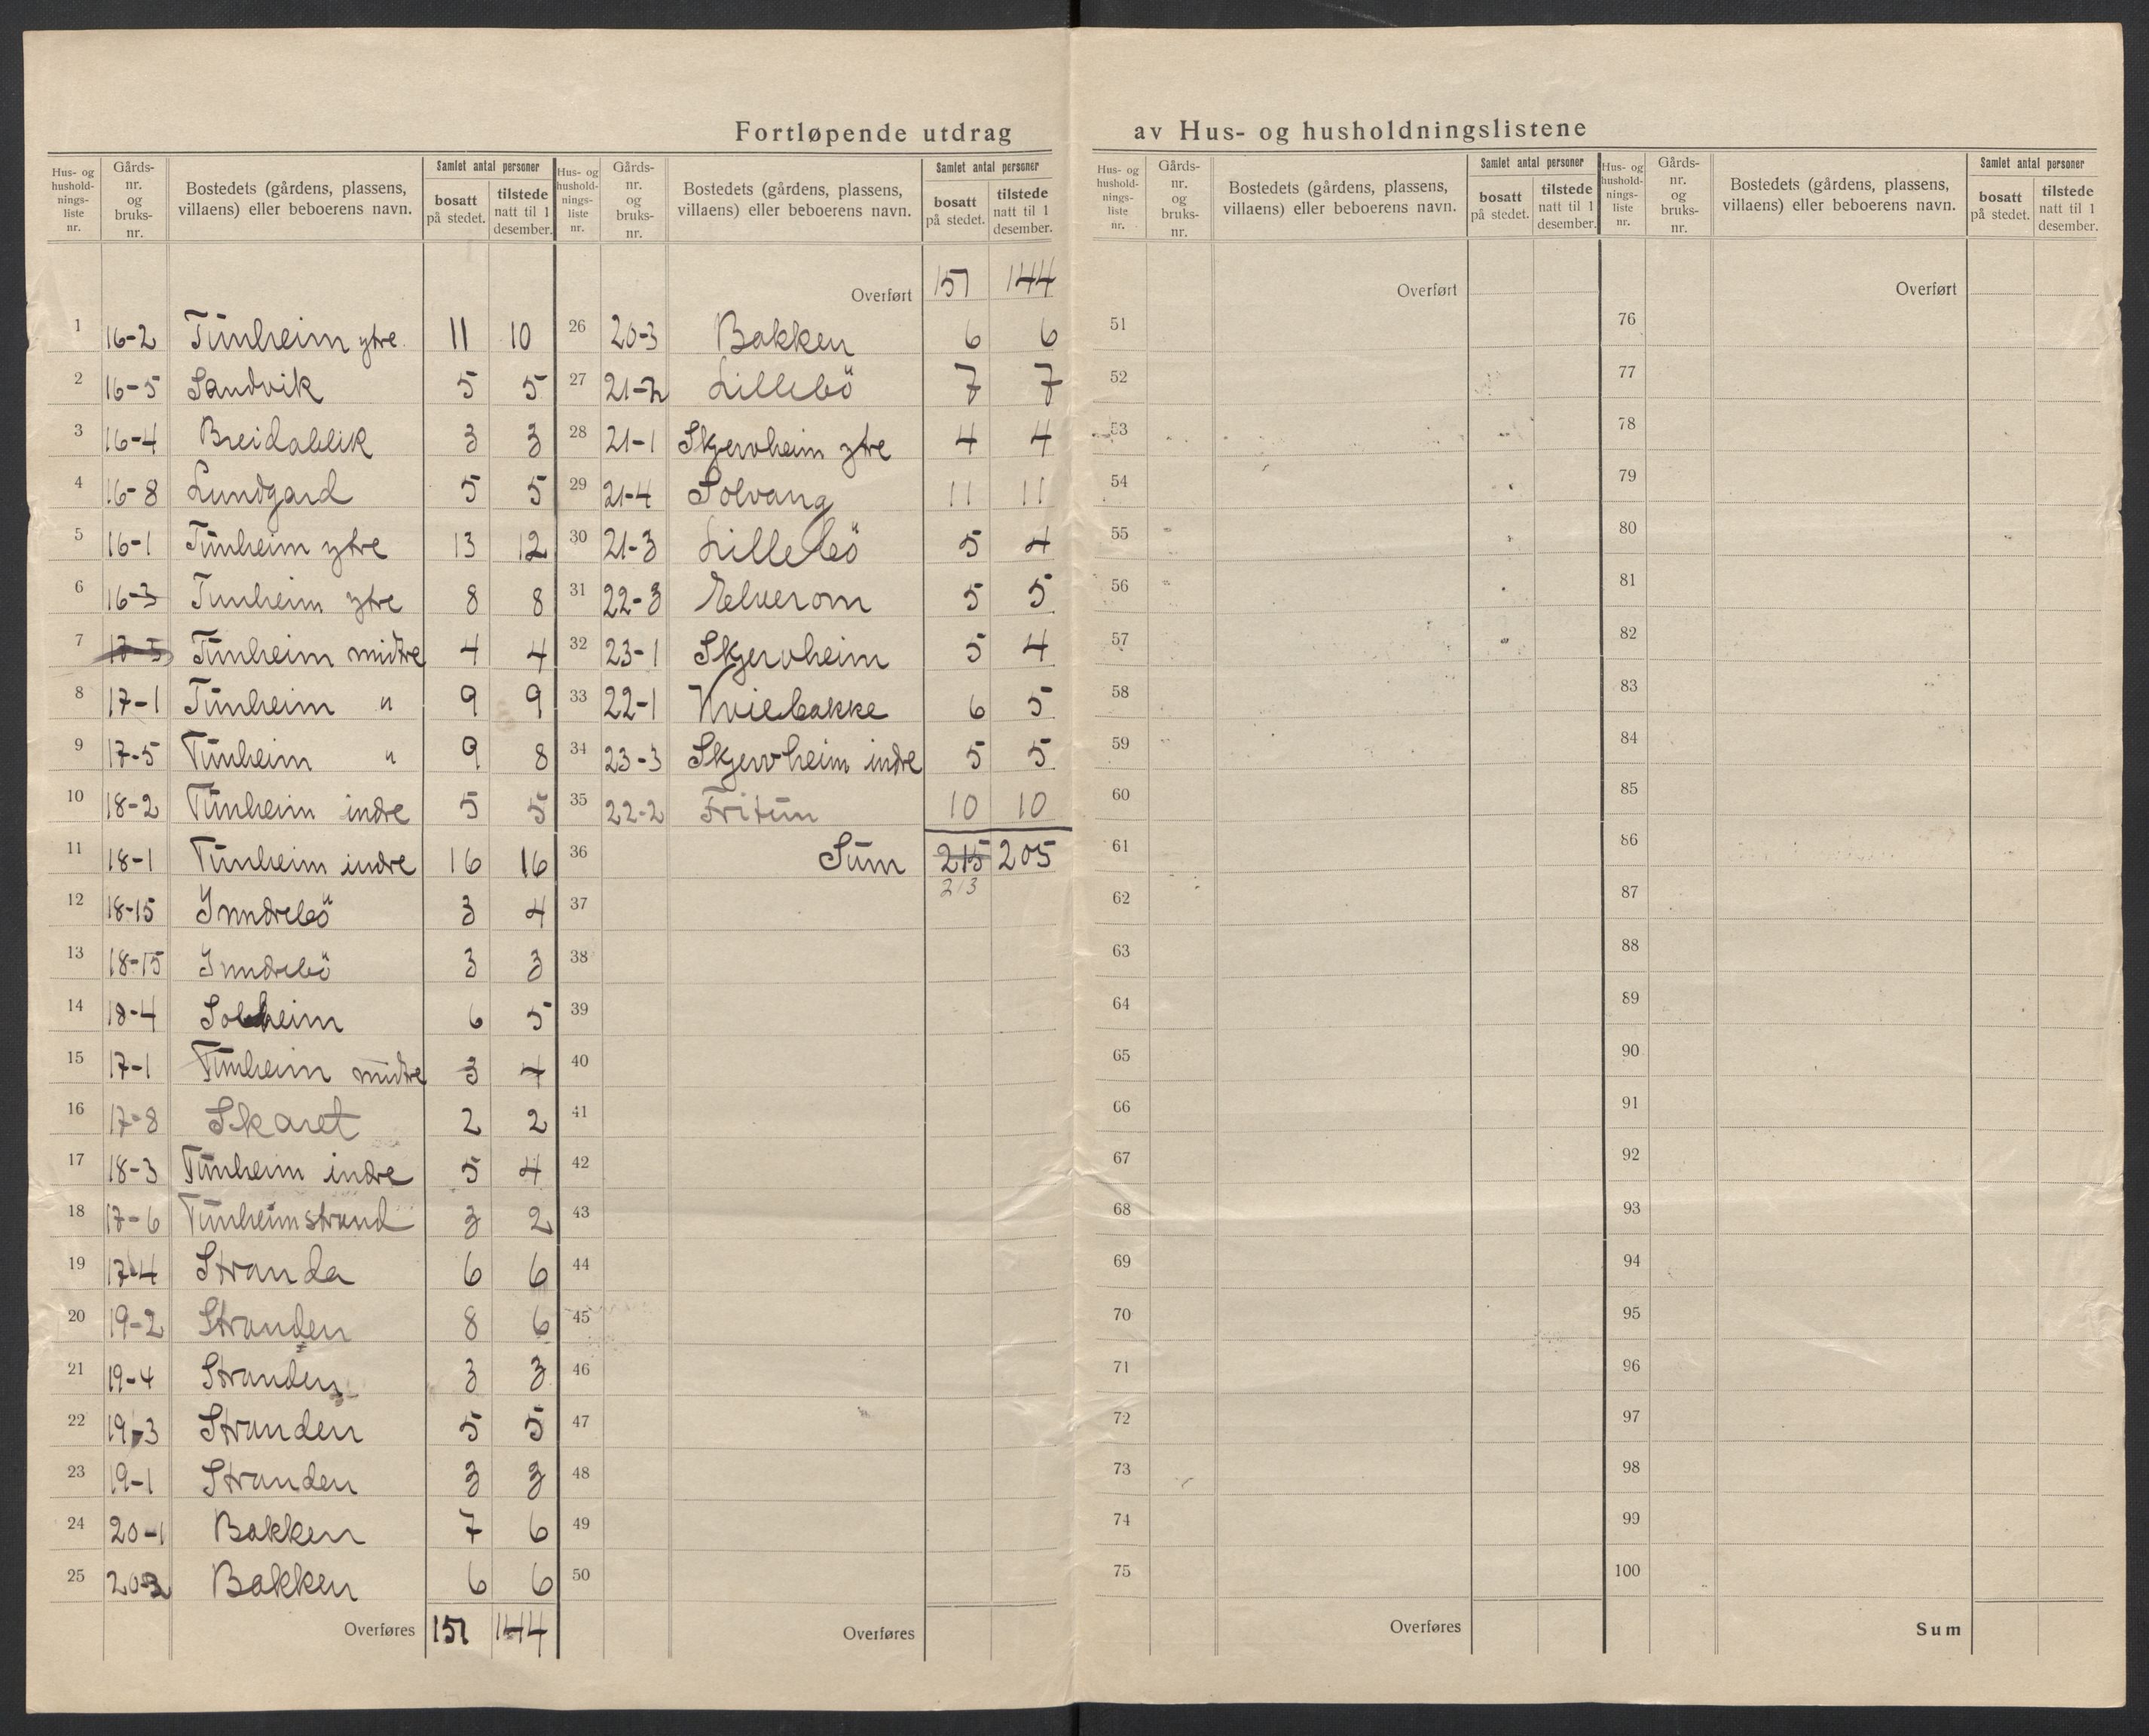 Fortløpende utdrag av Hus- og husholdningslistene
Hus- og hushold- nings- liste nr. | Gårds- nr. og bruks- nr. | Bostedets (gårdens, plassens, villaens) eller beboerens navn. | Samlet antal personer | bosatt på stedet. | tilstede natt til 1 desember.
1 16-2 Tūnheim ytre 11 10
2 16-5 Sandvik 5 5
3 16-4 Breidablik 3 3
4 16-8 Lundgard 5 5
5 16-1 Tūnheim ytre 13 12
6 16-3 Tunheim ytre 8 8
7 17-5 Tūnheim midtre 4 4
8 17-1 Tūnheim " 9 9
9 17-5 Tūnheim " 9 8
10 18-2 Tūnheim indre 5 5
11 18-1 Tūnheim indre 16 16
12 18-15 Inndrebö 3 4
13 18-15 Inndrebö 3 3
14 18-4 Solheim 6 5
15 17-1 Tūnheim midtre 3 4
16 17-8 Skaret 2 2
17 18-3 Tūnheim indre 5 4
18 17-6 Tūnheimstrand 3 2
19 17-4 Stranda 6 6
20 19-2 Stranden 8 6
21 19-4 Stranden 3 3
22 19-3 Stranden 5 5
23 19-1 Stranden 3 3
24 20-1 Bakken 7 6
25 20-2 Bakken 6 6
Overføres 151 144
Hus- og hushold- nings- liste nr. | Gårds- nr. og bruks- nr. | Bostedets (gårdens, plassens, villaens) eller beboerens navn. | Samlet antal personer | bosatt på stedet. | tilstede natt til 1 desember.
Overført 151 144
26 20-3 Bakken 6 6
27 21-2 Lillebö 7 7
28 21-1 Skjervheim ytre 4 4
29 21-4 Solvang 11 11
30 21-3 Lillebö 5 4
31 22-3 Elverom 5 5
32 23-1 Skjervheim 5 4
33 22-1 Kvilebakke 6 5
34 23-3 Skjervheim indre 5 5
35 22-2 Fritūn 10 10
36 Sūm 215 205
213
37
38
39
40
41
42
43
44
45
46
47
48
49
50
Overføres
Hus- og hushold- nings- liste nr. | Gårds- nr. og bruks- nr. | Bostedets (gårdens, plassens, villaens) eller beboerens navn. | Samlet antal personer | bosatt på stedet. | tilstede natt til 1 desember.
Overført
51
52
53
54
55
56
57
58
59
60
61
62
63
64
65
66
67
68
69
70
71
72
73
74
75
Overføres
Hus- og hushold- nings- liste nr. | Gårds- nr. og bruks- nr. | Bostedets (gårdens, plassens, villaens) eller beboerens navn. | Samlet antal personer | bosatt på stedet. | tilstede natt til 1 desember.
Overført
76
77
78
79
80
81
82
83
84
85
86
87
88
89
90
91
92
93
94
95
96
97
98
99
100
Sum